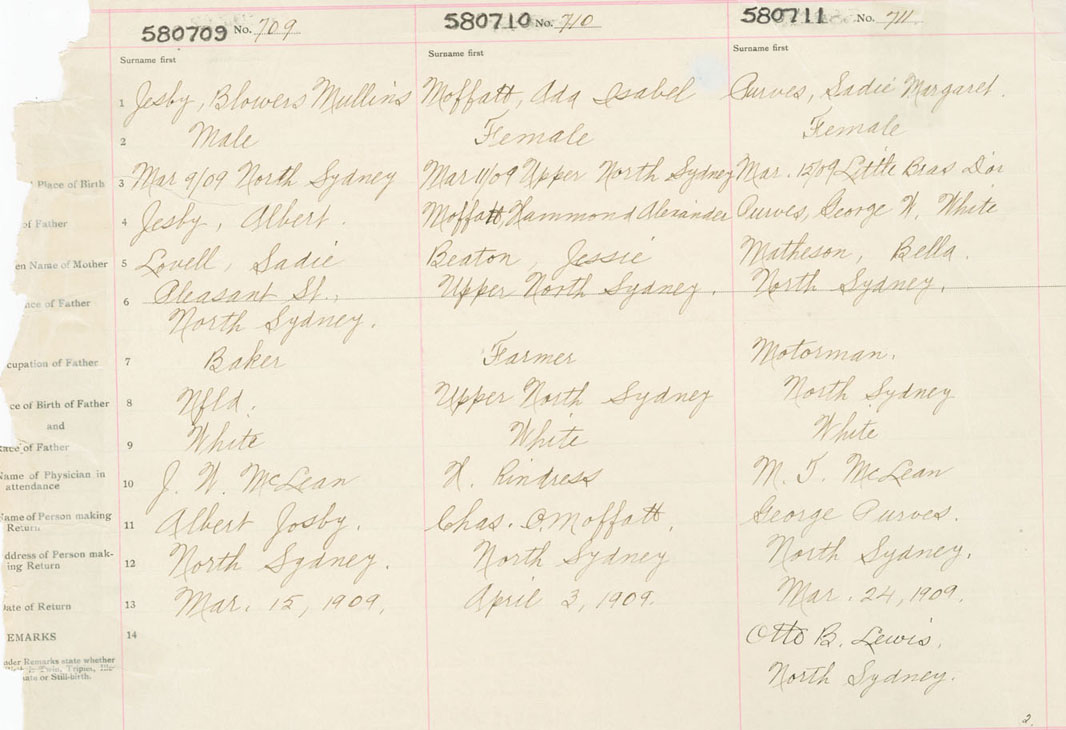 580709 No. 709
Surname first
1 Jesby, Blowers Mullins
2 Male
Place of Birth 3 Mar 9/09 North Sydney
of Father 4 Jesby, Albert.
en Name of Mother 5 Lovell, Sadie
nce of Father 6 Pleasant St.,
North Sydney.
cupation of Father 7 Baker
ce of Birth of Father 8 Nfld.
and
Race of Father 9 White
Name of Physician in
attendance 10 J. W. McLean
Name of Person making
Return 11 Albert Josby.
ddress of Person mak-
ing Return 12 North Sydney.
Date of Return 13 Mar. 15, 1909.
EMARKS 14
nder Remarks state whether
Twin, Triplet,
ate or Still-birth.
580710 No. 710
Surname first
Moffatt, Ada Isabel
Female
Mar 11/09 Upper North Sydney
Moffatt, Hammond Alexander
Beaton, Jessie
Upper North Sydney.
Farmer
Upper North Sydney
White
H. Rindress
Chas. O. Moffatt,
North Sydney
April 3, 1909.
580711 No. 711
Surname first
Purves, Sadie Margaret.
Female
Mar. 12/09 Little Bras D'or
Purves, George W. White
Matheson, Bella.
North Sydney.
Motorman.
North Sydney
White
M. T. McLean
George Purves.
North Sydney.
Mar. 24, 1909.
Otto B. Lewis,
North Sydney.
2.